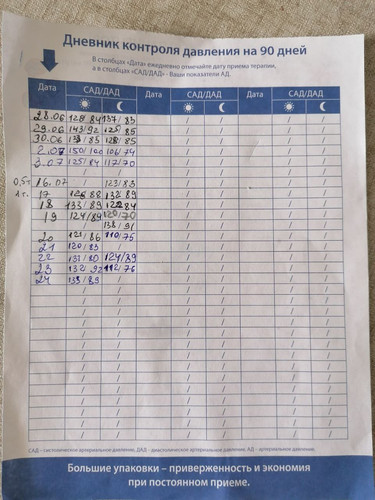 Дневник контроля давления на 90 дней
В столбцах «Дата» ежедневно отмечайте дату приема терапии,
а в столбцах «САД/ДАД» - Ваши показатели АД.
Дата САД/ДАД Дата САД/ДАД Дата САД/ДАД
28.06 128/84 137/83
29.06 143/92 125/85
30.06 133/85 128/85
2.07 150/100 106/74
3.07 125/84 117/70
0,5т 16.07 123/83
1т. 17 126/88 132/89
18 133/89 122/84
19 124/84 120/70
138/91
20 121/86 110/75
21 120/83
22 131/80 124/89
23 132/92 112/76
24 133/89
САД - систолическое артериальное давление, ДАД - диастолическое артериальное давление, АД - артериальное давление.
Большие упаковки – приверженность и экономия
при постоянном приеме.